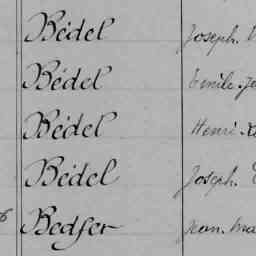 Bédel Joseph.
Bédel Emile.
Bédel Henri.
Bédel Joseph.
Bedfer Jean. Ma